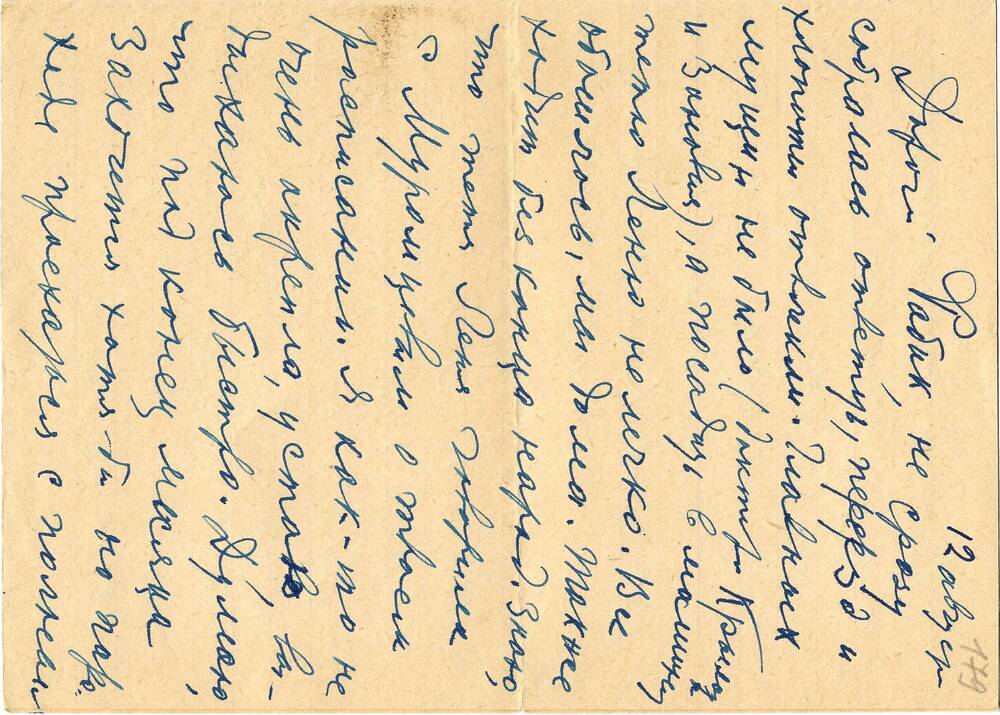 179
12 августа
Дорогой Фабик, не сразу
собралась ответить, переезд и
хлопоты отвлекли. Главных
мущин не было (доктора Крылова
и Зиновия), а посадить в машину
тетю Леню не легко. Все
обошлось, мы дома. Также
ходит без конца народ. Знаю,
что тетя Леня говорила
с Муромцевым о твоем
расписании. Я как-то не
очень окрепла, устаю, вы-
дыхаюсь быстро. Думаю,
что под конец месяца
захочется хотя-бы на паро-
ходе проехаться с полным